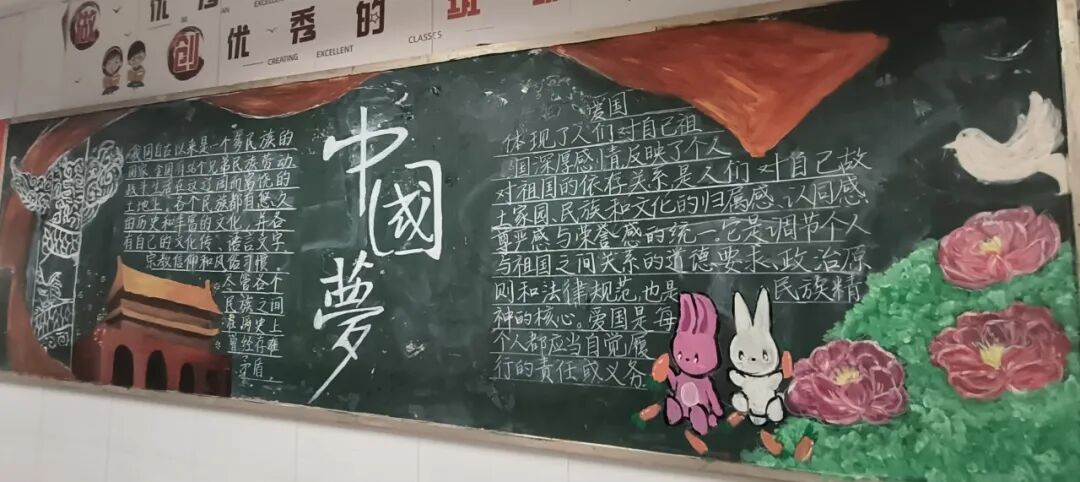 做
优秀
创优秀的
CREATING EXCELLENT CLASSES
我国自古以来是一个多民族的
国家,全国有56个兄弟民族劳动
土地上,各个民族都有悠久
的历史和丰富的文化,并各
有自己的文化传、语言文字
宗教信仰和风俗习惯
尽管各个
民族之间
在历史上
曾经存在
矛盾。
中國夢
爱国
体现了人们对自己祖
国深厚感情反映了个人
对祖国的依存关系是人们对自己故
土家园、民族和文化的归属感、认同感
尊严感与荣誉感的统一。它是调节个人
与祖国之间关系的道德要求、政治原
则和法律规范,也是民族精
神的核心。爱国是每
个人都应当自觉履
行的责任或义务